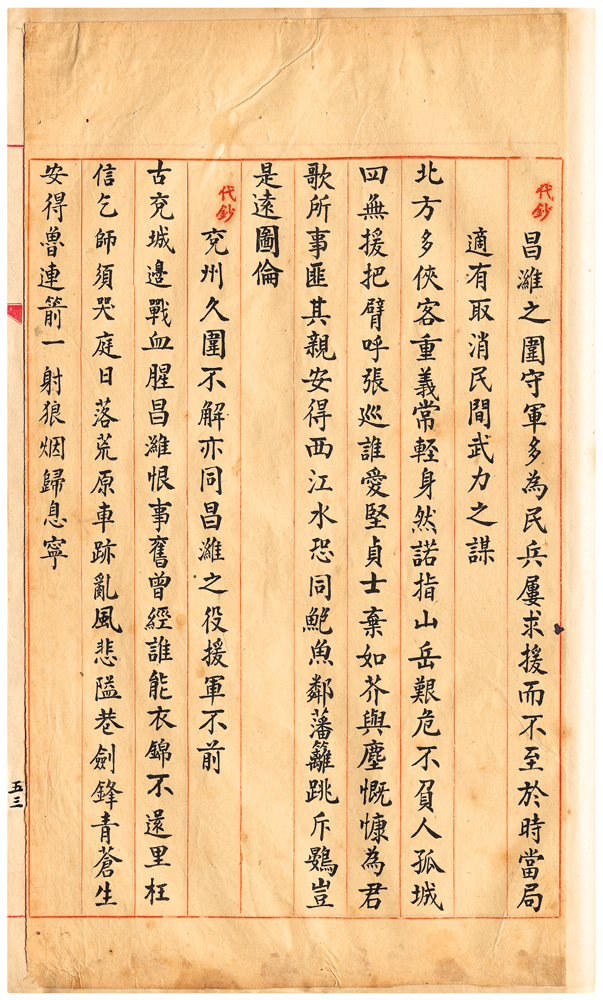 代鈔
昌濰之圍守軍多為民兵屢求援而不至於時當局
適有取消民間武力之謀
北方多俠客重義常輕身然諾指山岳艱危不負人孤城
四無援把臂呼張巡誰愛堅貞士棄如芥與塵慨慷為君
歌所事匪其親安得西江水恐同鮑魚鄰藩籬跳斥鷃豈
是遠圖倫
代鈔
兗州久圍不解亦同昌濰之役援軍不前
古兗城邊戰血腥昌濰恨事舊曾經誰能衣錦不還里枉
信乞師須哭庭日落荒原車跡亂風悲隘巷劍鋒青蒼生
安得魯連箭一射狼烟歸息寧
五三